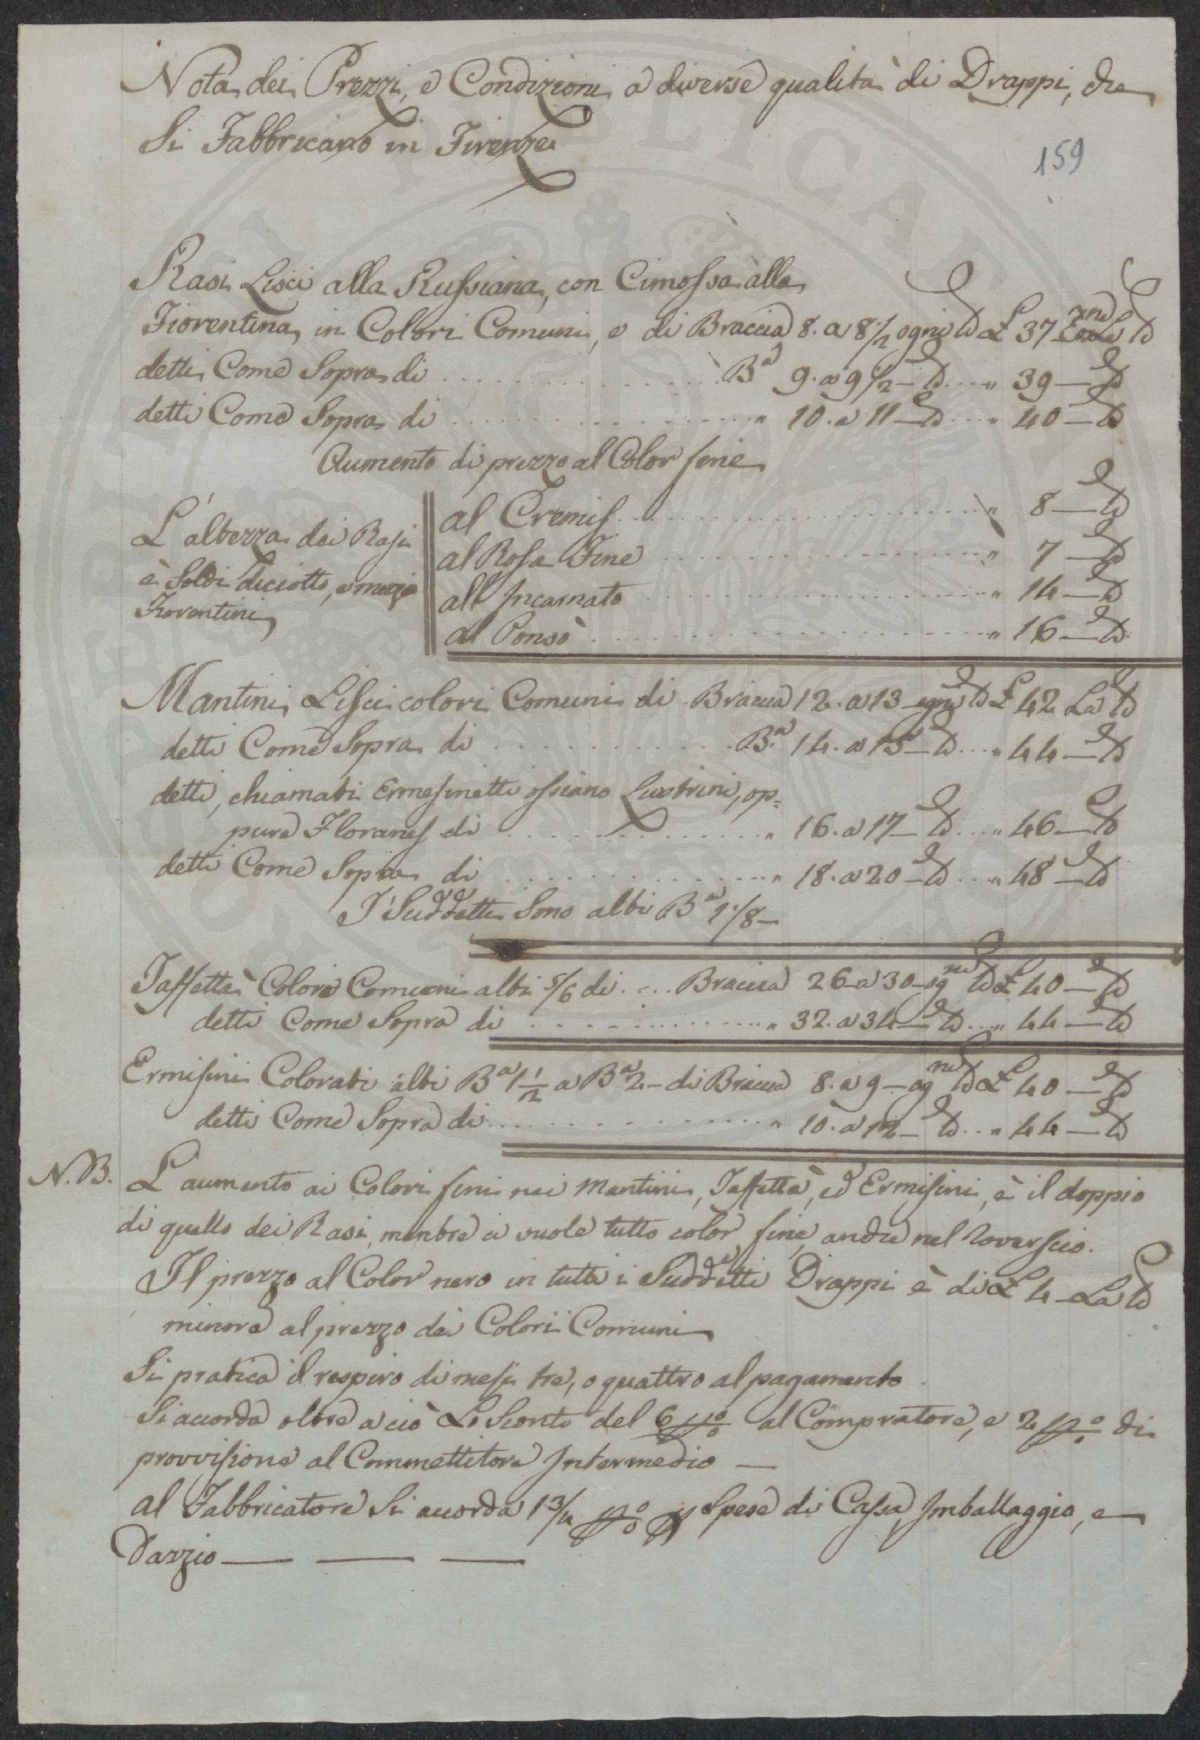 Nota dei Prezzi, e Condizioni a diverse qualità di Drappi, che
Si Fabbricano in Firenze
159
Rasi Lisci alla Russiana, con Cimossa alla
Fiorentina, in Colori Comuni, e di Braccia 8. a 8 1/2 ogni ℔ £ 37 la ℔
detti Come Sopra di ............ Ba 9. a 9 1/2 — ℔ .... „ 39 — ℔
detti Come Sopra di ............ „ 10. a 11 — ℔ .... „ 40 — ℔
Aumento di prezzo al Color fine
L'altezza dei Rasi
è Soldi diciotto, e mezzo
Fiorentini
al Cremis ............ „ 8 — ℔
al Rosa Fine ............ „ 7 — ℔
all'Incarnato ............ „ 14 — ℔
al Ponsò ............ „ 16 — ℔
Mantini Lisci colori Comuni di Braccia 12. a 13 ogni ℔ £ 42 La ℔
detti Come Sopra di ............ Ba 14. a 15 — ℔ .... „ 44 — ℔
detti, chiamati Ermesinetti ossiano Lustrini, op=
pure Florances di ............ „ 16. a 17 — ℔ .... „ 46 — ℔
detti Come Sopra di ............ „ 18. a 20 — ℔ .... „ 48 — ℔
I Suddetti Sono alti Ba 1 1/8 —
Taffettà Colori Comuni alti 5/6 di .... Braccia 26 a 30 ogni ℔ £ 40 — ℔
detti Come Sopra di ............ „ 32. a 34 — ℔ .... „ 44 — ℔
Ermisini Colorati alti Ba 1 1/2 a Ba 2 — di Braccia 8. a 9 — ogni ℔ £ 40 — ℔
detti Come Sopra di ............ „ 10. a 12 — ℔ ... „ 44 — ℔
N.B. L'aumento ai Colori fini nei Mantini, Taffettà, ed Ermisini, è il doppio
di quello dei Rasi, mentre ci vuole tutto color fine, anche nel Roverscio.
Il prezzo al Color nero in tutti i Suddetti Drappi è di £ 4 La ℔
minore al prezzo dei Colori Comuni
Si pratica il respiro di mesi tre, o quattro al pagamento.
Si accorda oltre a ciò Lo Sconto del 6 p% al Compratore, e 2 p% di
provvisione al Commettitore Intermedio —
al Fabbricatore Si accorda 1 3/4 p% p Spese di Cassa, Imballaggio, e
Dazio — — —